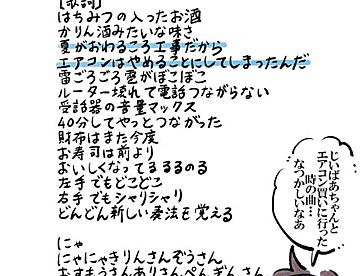 【歌詞】
はちみつの入ったお酒
かりん酒みたいな味さ
夏がおわるころ工事だから
エアコンはやめることにしてしまったんだ
雷ごろごろ雹がぼこぼこ
ルーター壊れて電話つながらない
受話器の音量マックス
40分してやっとつながった
財布はまた今度
お寿司は前より
おいしくなってるるるのる
左手でもどこどこ
右手でもシャリシャリ
どんどん新しい奏法を覚える
にゃ
にゃにゃきりんさんぞうさん
おすもうさんありさんぺんぎんさん
じいばあちゃんと
エアコン買いに行った
時の曲…
なつかしいなあ